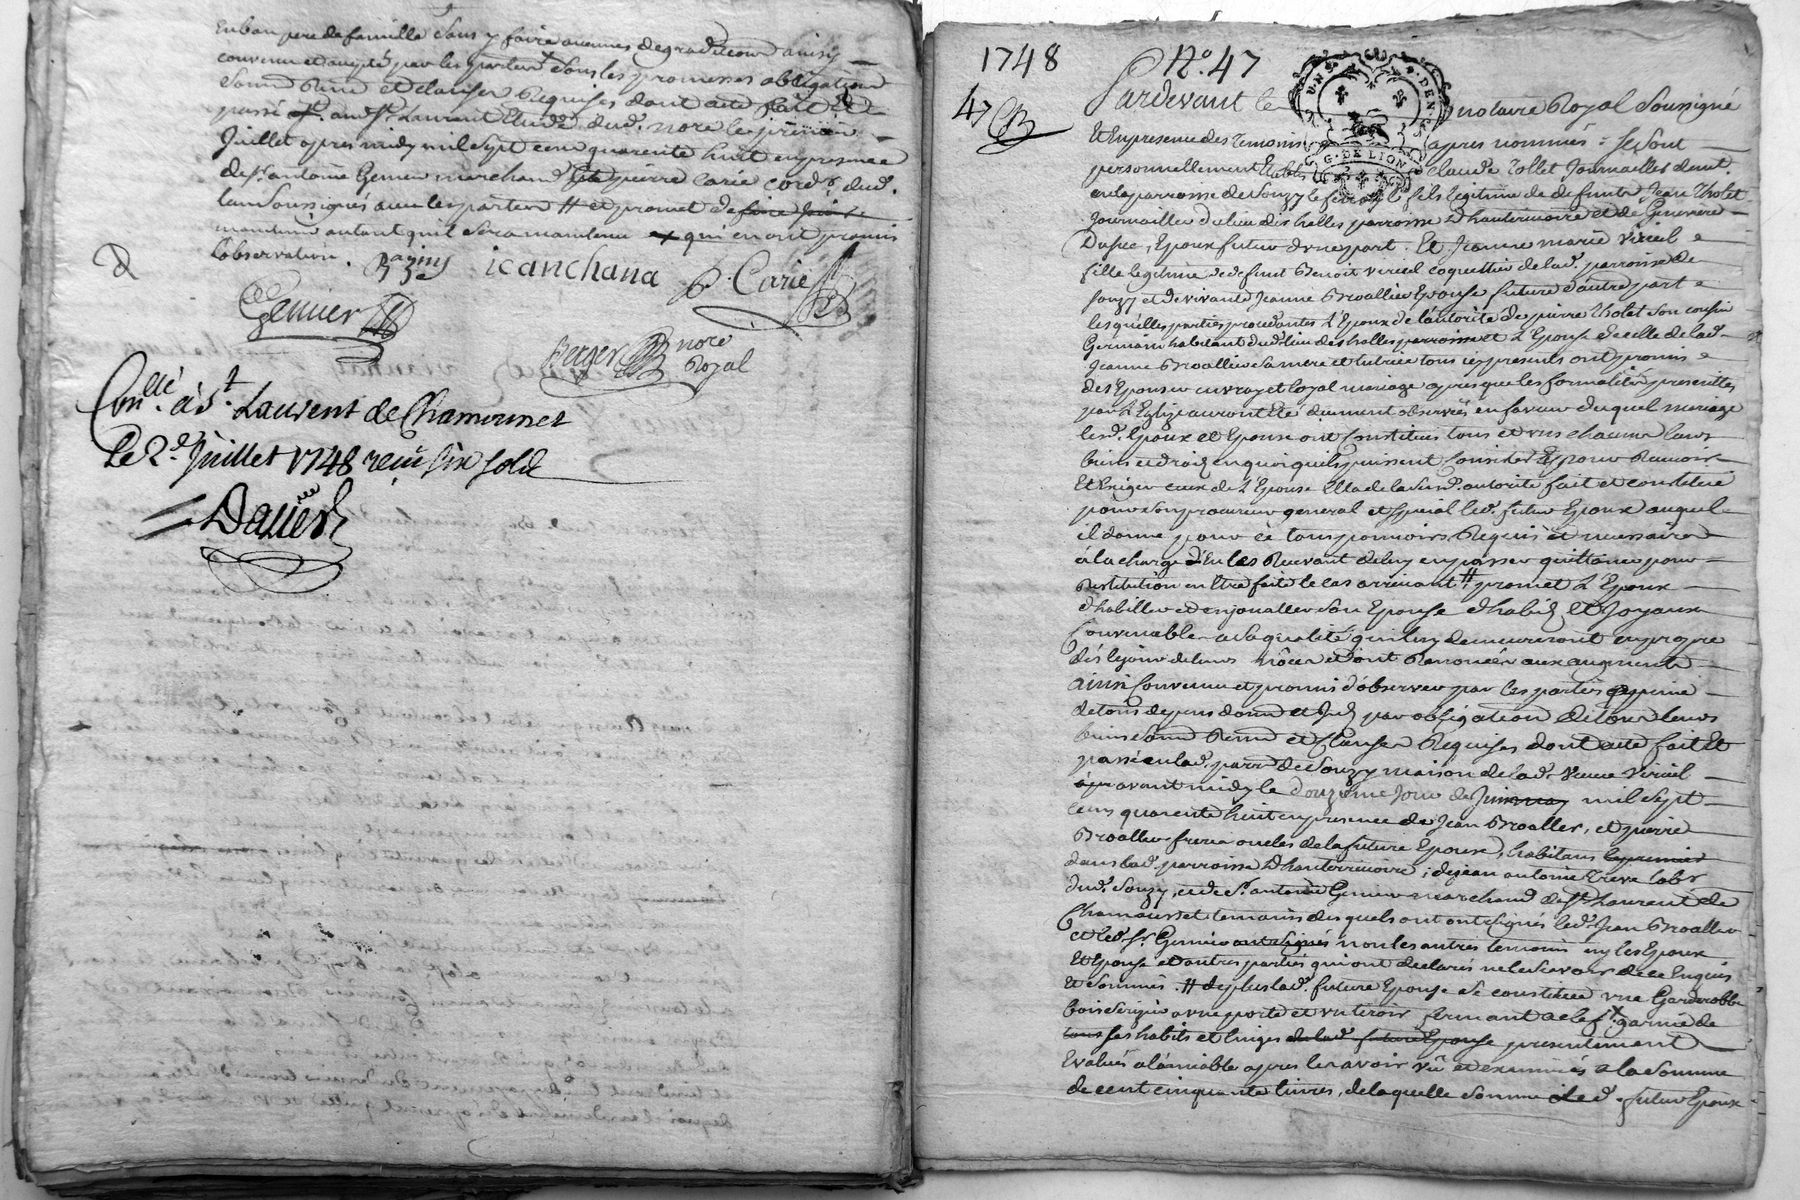 En bon pere de famille sans y faire aucunes degradations ainsy
convenu et accepté par les parties sous les promesses obligations
soumis. Renon. et clauses Requises dont acte fait Et
passé aud. St. Laurent Etude dud. nore le premier
Juillet apres midy mil sept cent quarente huit en presence
de sr. antoine Genier marchand et pierre Carie cord.r dud.
lieu soussignés avec les parties # et promet de faire
maintenir autant qu'il sera maintenu qui en ont promis
l'observation.
icanchana
P. Carie
Genier
Berger nore
Royal
Conllé. à St. Laurent de Chamousset
Le 2e. Juillet 1748 reçu six sols
1748 No. 47
47
Pardevant le notaire Royal soussigné
Et En presence des temoins apres nommés : se sont
personnellement Etablis claude tollet Journallier demt.
en la parroisse de Souzy fils legitime de defunts Jean tholet
Journallier du lieu des halles parroisse d'hauterivoire et de Genevieve
Dupuc, Epoux futur d'une part. Et Jeanne marie viricel
fille legitime de defunt Benoit viricel coquettier de lad. parroisse de
souzy et de vivante Jeanne Broallier Epouse future d'autre part
lesquelles parties procedantes L'Epoux de l'autorité de pierre tholet son cousin
Germain habitant dud. lieu des halles parroisse et L'Epouse de celle de lad.
Jeanne Broallier sa mere et tutrice tous icy presents ont promis
de s'Epouser en vray et loyal mariage apres que les formalités prescrittes
par L'Eglize auront Eté duement observées en faveur duquel mariage
lesd. Epoux et Epouse ont constitués tous et uns chacuns leurs
biens et droits en quoi qu'ils puissent consister Et pour Recevoir
Et Exiger ceux de L'Epouse Elle de la susd. autorité fait et constitue
pour son procureur general et special led. futur Epoux auquel
il donne pour ce tous pouvoirs Requis et necessaires
à la charge d'En les Recevant de luy en passer quittance pour
Restitution en Etre faite le cas arrivant # promet L'Epoux
d'habiller et enjoualler son Epouse d'habits Et Joyaux
Convenables a sa qualité qui luy demeureront en propre
dés le jour de leurs nôces et ont Renoncés aux augments
ainsi Convenu et promis d'observer par les parties a peine
de tous depens dom. et Int. par obligation de tous leurs
biens soum. Renon. et Clauses Requises dont acte fait Et
passé en lad. parr. de Souzy maison de lad. veuve viricel
avant midy le douzième Jour de Juin mil sept
cent quarente huit en presence de Jean Broallier, et pierre
Broallier freres oncles de la future Epouse, habitans
dans lad. parroisse d'hauterivoire ; de jean antoine Treve lab.r
dud. Souzy, et de Sr. antoine Genier marchand de St. Laurent de
Chamousset temoins desquels ont ont signés led. Jean Broallier
et led. Sr. Genier ont signés non les autres temoins ny les Epoux
Et Epouse et autres parties qui ont declarés ne le scavoir de ce Enquis
Et sommés. # de plus lad. future Epouse se constitue une Garderobbe
bois serizier a une porte et un tiroir fermant a clef garnie de
tous ses habits et linges de lad. future Epouse presentement
Evalués a l'amiable apres les avoir vû et examinés a la somme
de cent cinquante livres, de laquelle somme led. futur Epoux